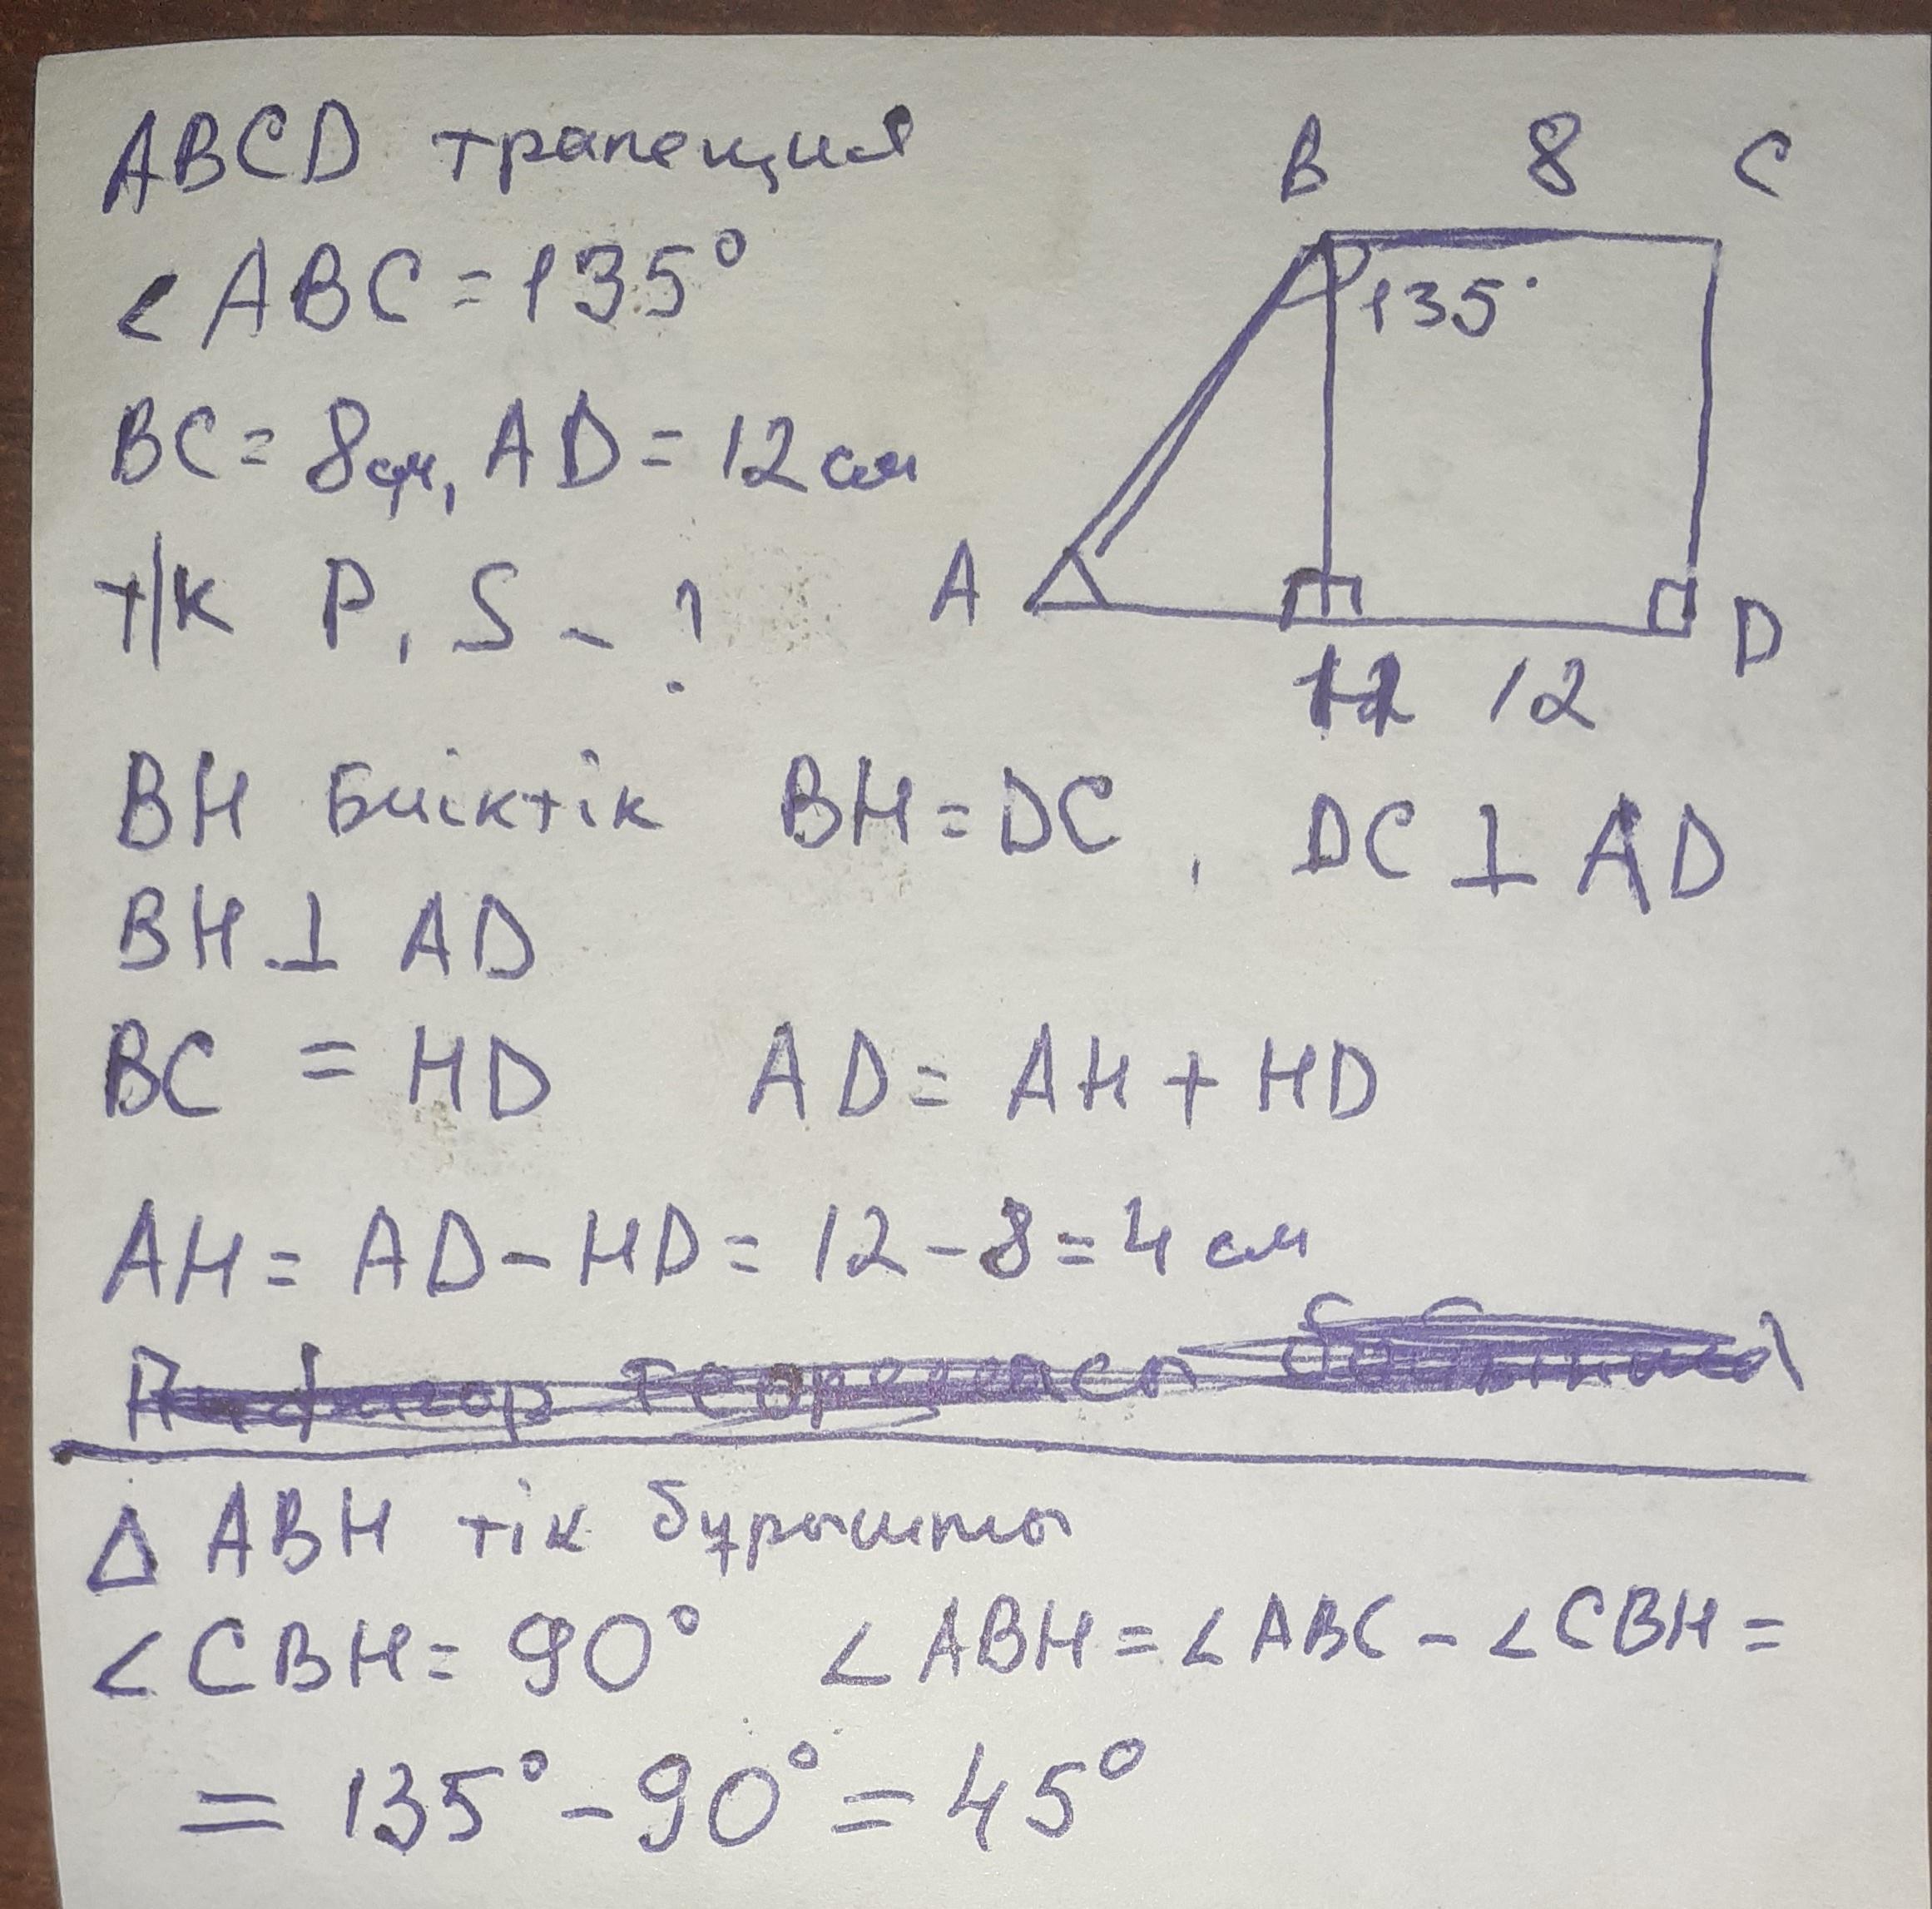 ABCD трапеция
B 8 C
∠ABC = 135°
135°
BC = 8см, AD = 12 см
A
D
т/к P, S - ?
12
BH биіктік BH = DC, DC ⊥ AD
BH ⊥ AD
BC = HD AD = AH + HD
AH = AD - HD = 12 - 8 = 4 см
Пифагор теоремасы бойынша
Δ ABH тік бұрышты
∠CBH = 90° ∠ABH = ∠ABC - ∠CBH =
= 135° - 90° = 45°